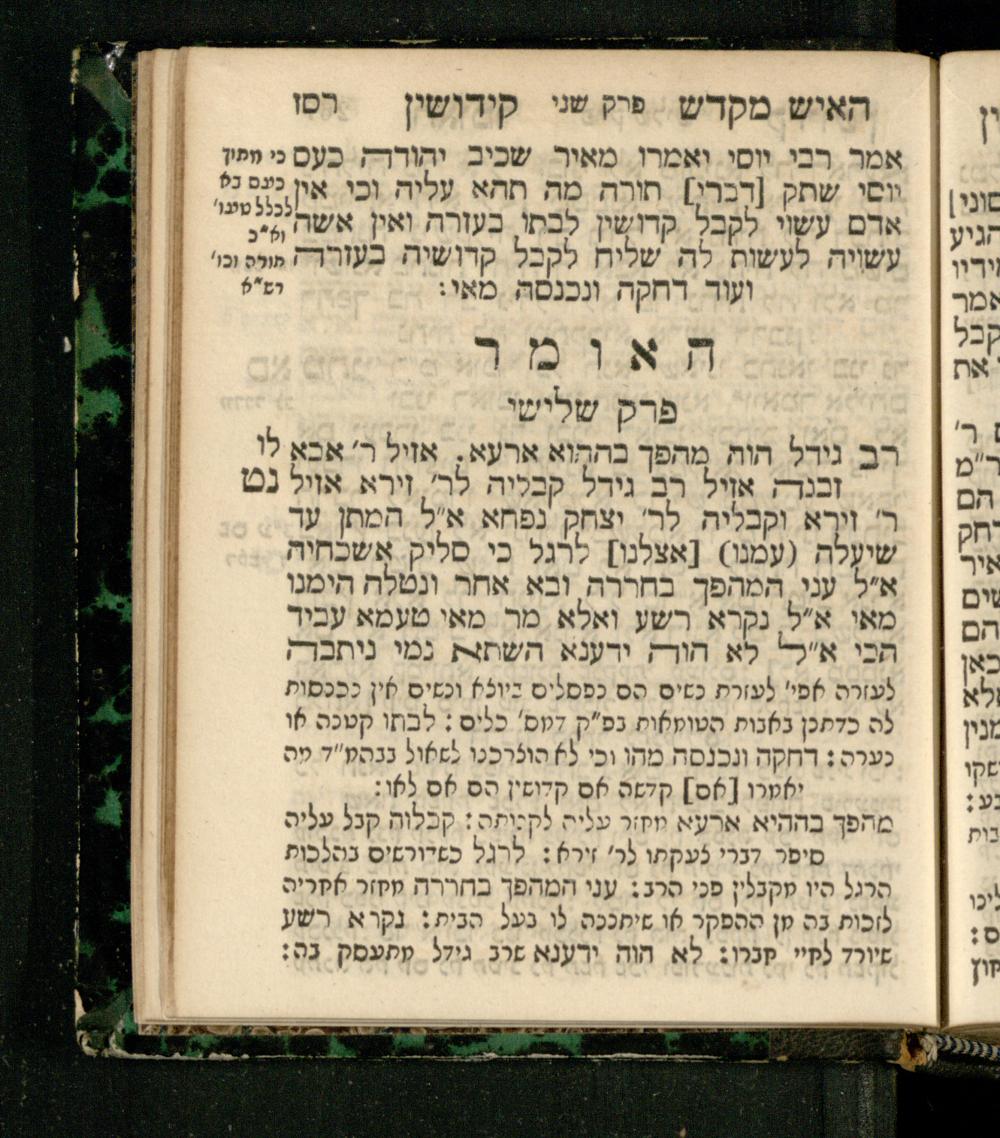 האיש מקדש פרק שני קידושין רסז
אמר רבי יוסי יאמרו מאיר שכיב יהודה כעס
יוסי שתק [דברי] תורה מה תהא עליה וכי אין
אדם עשוי לקבל קדושין לבתו בעזרה ואין אשה
עשויה לעשות לה שליח לקבל קדושיה בעזרה
ועוד דחקה ונכנסה מאי:
כי מתיך
כינם בא
וא"כ
תורה וכו'
רש"א
האומר
פרק שלישי
רב גידל הוה מהפך בההוא ארעא. אזיל ר' אבא לו
זבנה אזיל רב גידל קבליה לר' זירא אזיל נט
ר' זירא וקבליה לר' יצחק נפחא א"ל המתן עד
שיעלה (עמנו) [אצלנו] לרגל כי סליק אשכחיה
א"ל עני המהפך בחררה ובא אחר ונטלה הימנו
מאי א"ל נקרא רשע ואלא מר מאי טעמא עביד
הכי א"ל לא הוה ידענא השתא נמי ניתבה
לעזרה אפי' לעזרת נשים הם נפסלים ביוצא ונשים אין נכנסות
לה כדתנן באבות הטומאות בפ"ק דמס' כלים: לבתו קטנה או
נערה: דחקה ונכנסה מהו וכי לא הוצרכנו לשאול בבהמ"ד מה
יאמרו [אם] קדשה אם קדושין הם אם לאו:
מהפך בההיא ארעא מחזר עליה לקנותה: קבלוה קבל עליה
סיפר דברי צעקתו לר' זירא: לרגל כשדורשים בהלכות
הרגל היו מקבלין פני הרב: עני המהפך בחררה מחזר אחריה
לזכות בה מן ההפקר או שיתננה לו בעל הבית: נקרא רשע
שיורד לחיי חברו: לא הוה ידענא שרב גידל מתעסק בה: